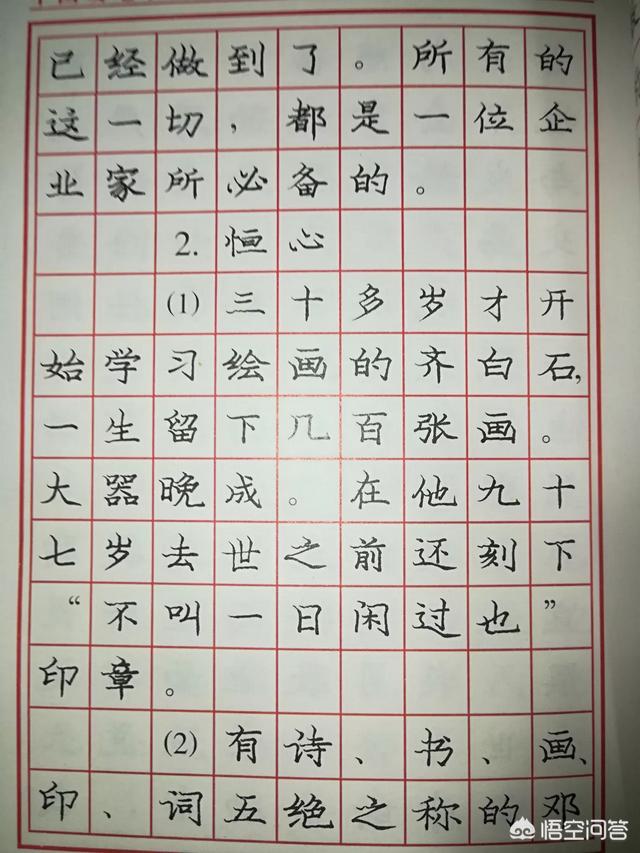 已经做到了。所有的
这一切，都是一位企
业家所必备的。
2.恒心
(1)三十多岁才开
始学习绘画的齐白石,
一生留下几百张画。
大器晚成。在他九十
七岁去世之前还刻下
“不叫一日闲过也”
印章。
(2)有诗、书、画、
印、词五绝之称的邓
悟空问答